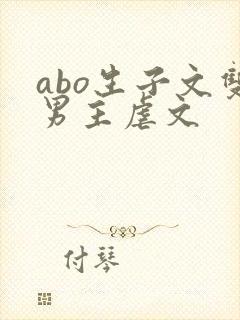 abo生子文雙
男主虐文
付琴